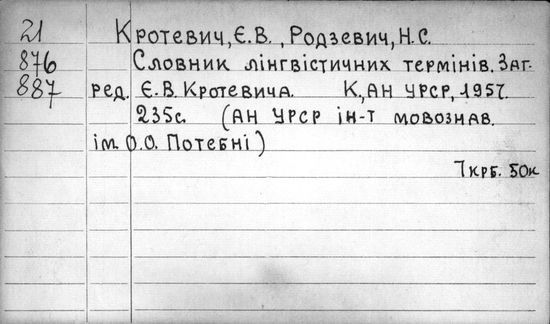 21 Кротевич, Є.В., Родзевич, Н.С.
876 Словник лінгвістичних термінів. Заг.
887 ред. Є.В. Кротевича. К., АН УРСР, 1957.
235с. (АН УРСР ін-т мовознав.
ім. О.О. Потебні)
7 крб. 50к